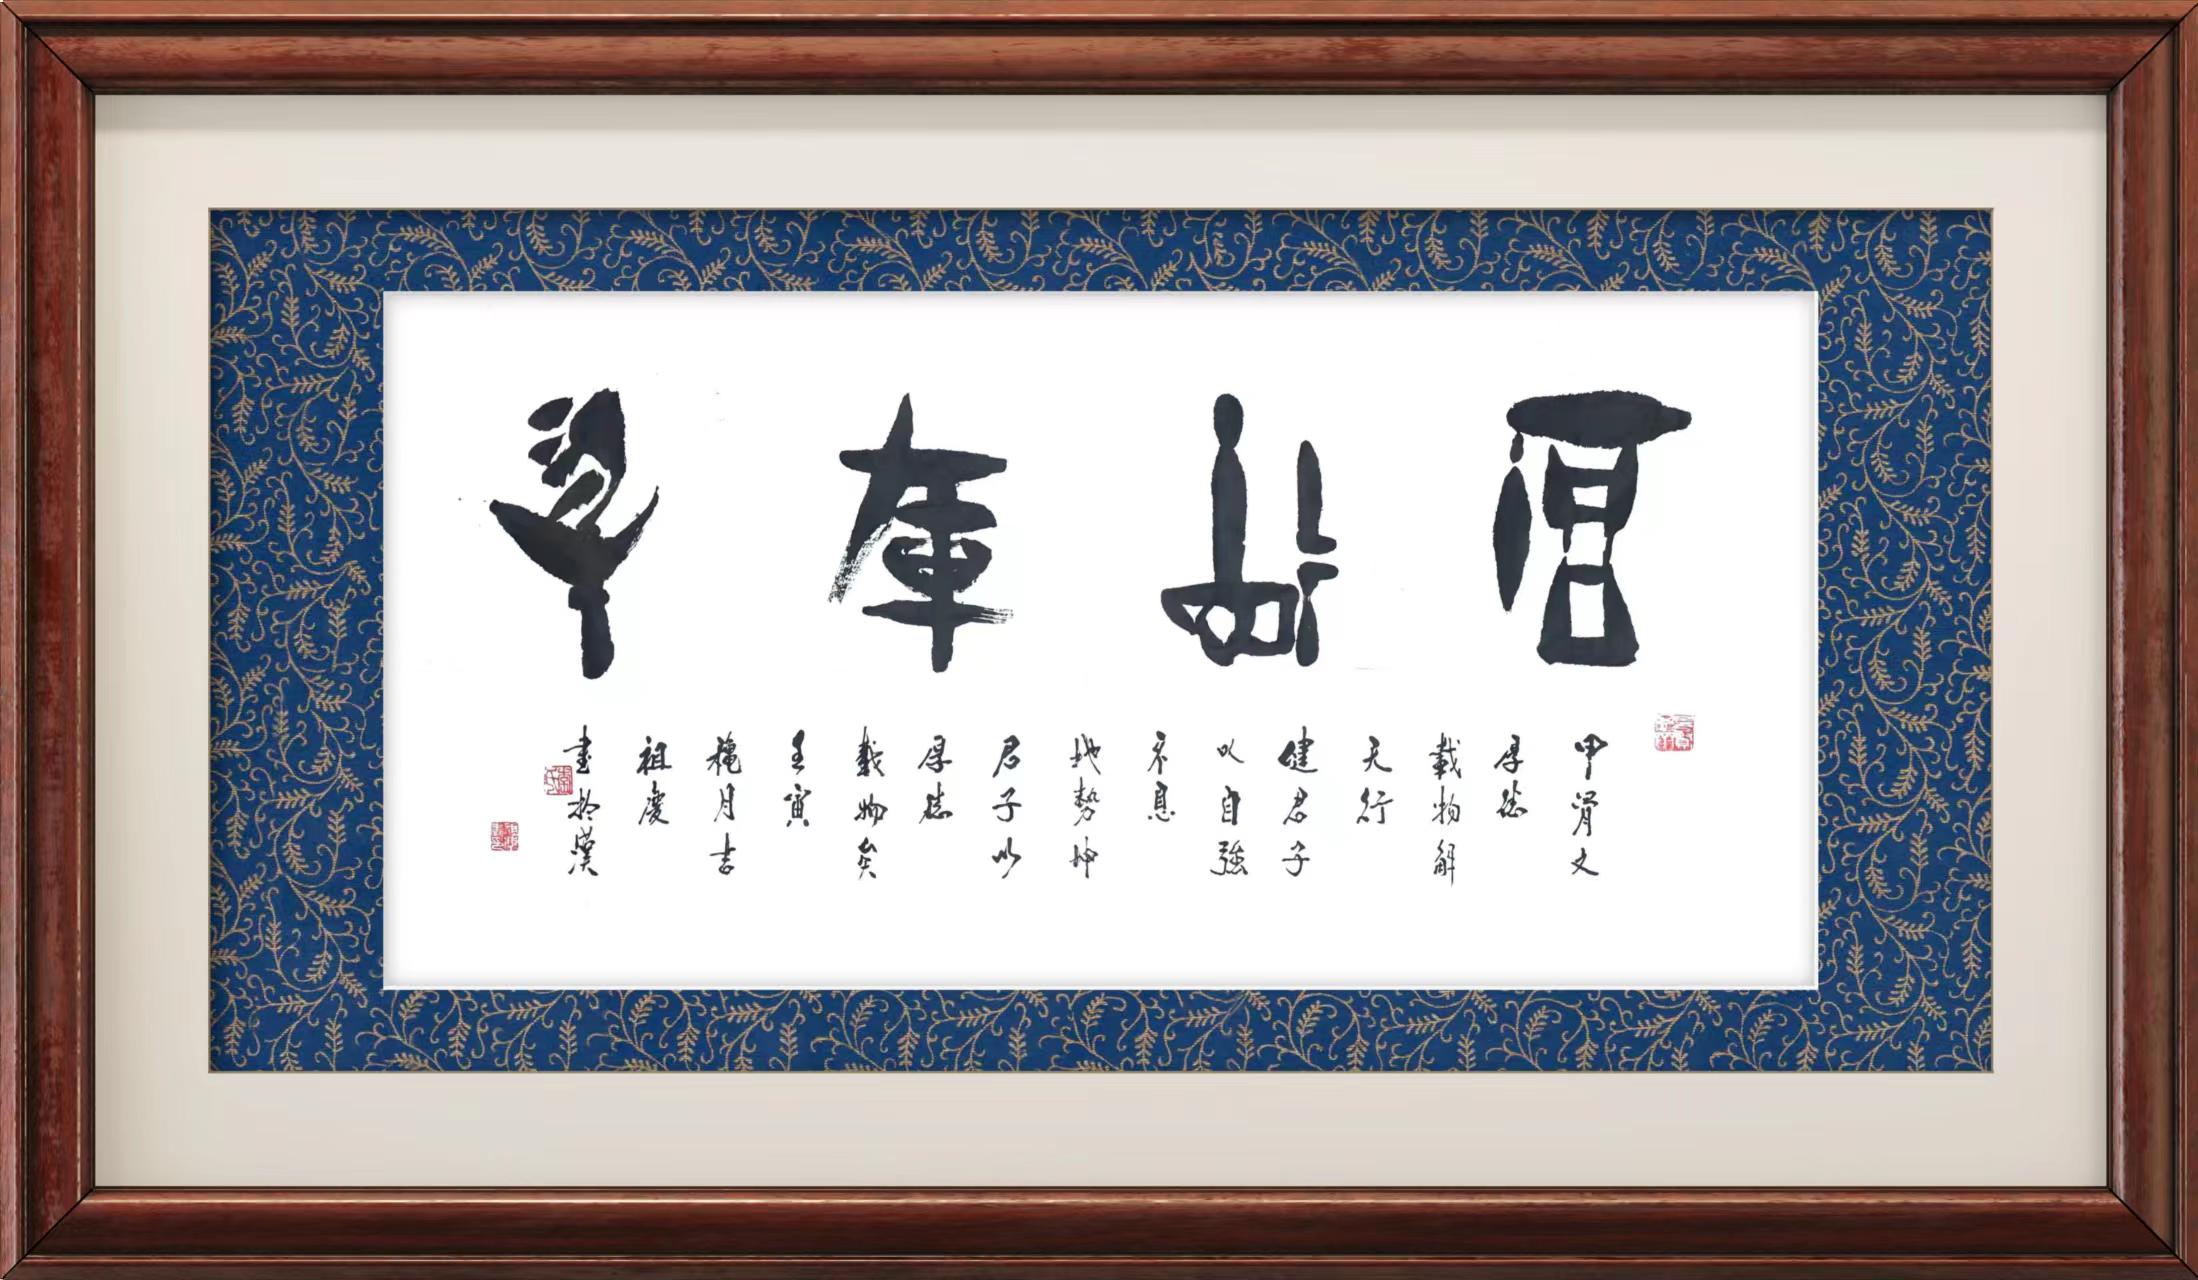 厚德載物
甲骨文
厚德
載物解
天行
健君子
以自強
不息
地勢坤
君子以
厚德
載物矣
壬寅
穐月吉
祖慶
書於漢